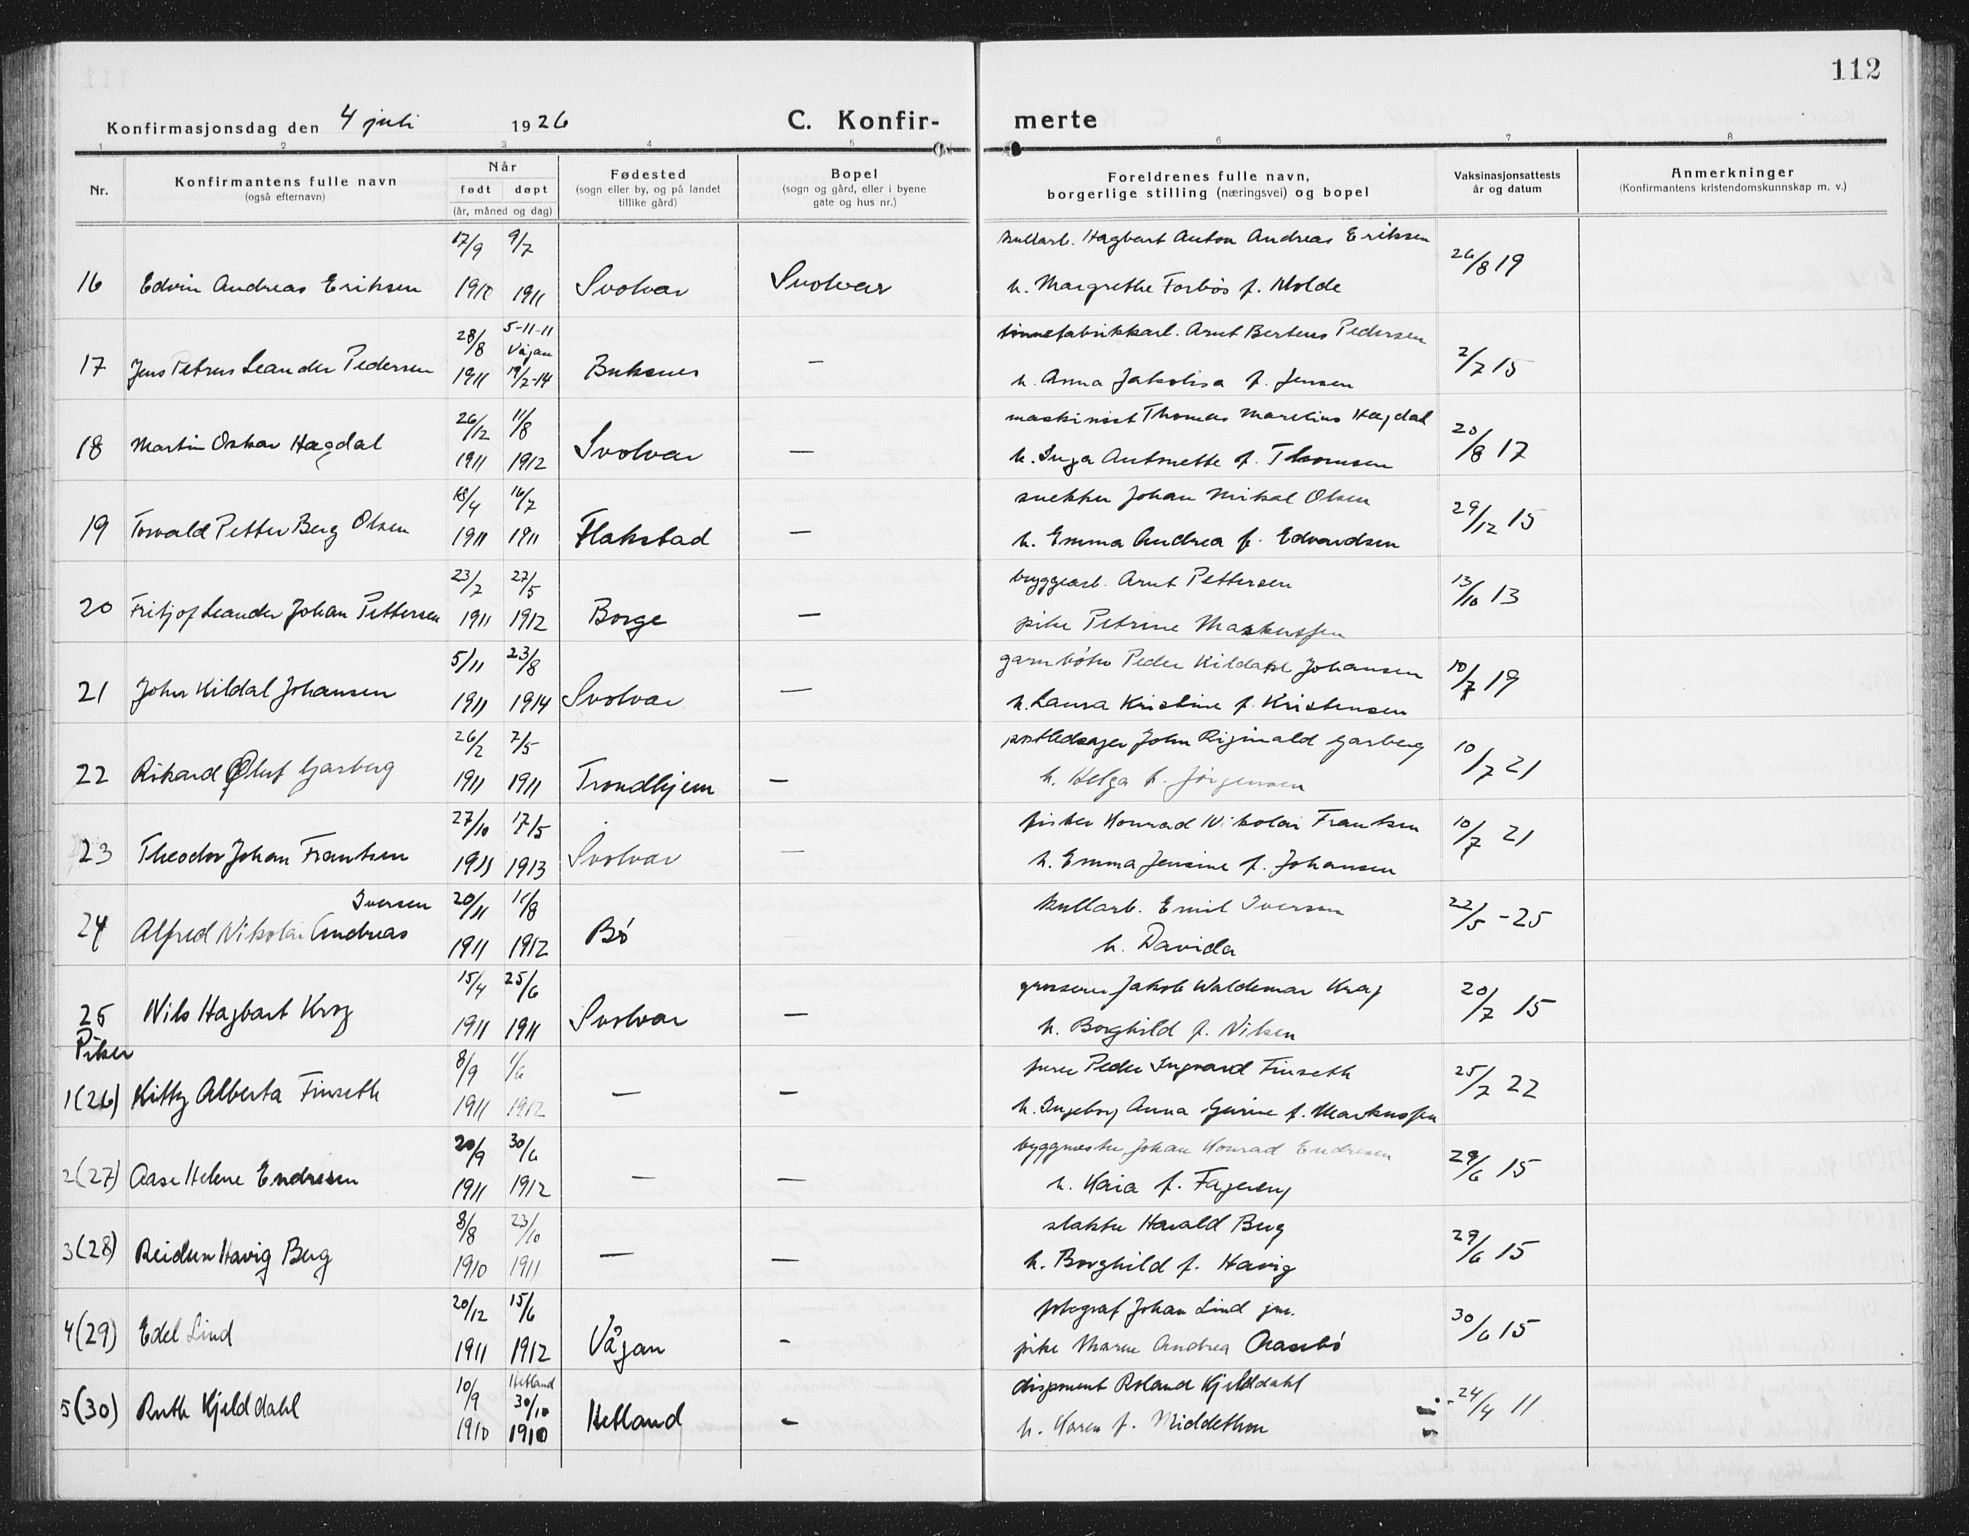 112
Konfirmasjonsdag den 4 juli 1926 C. Konfir- merte
1 2 3 4 5 6 7 8
Nr. Konfirmantens fulle navn (også efternavn) Når født døpt (år, måned og dag) Fødested (sogn eller by, og på landet tillike gård) Bopel (sogn og gård, eller i byene gate og hus nr.) Foreldrenes fulle navn, borgerlige stilling (næringsvei) og bopel Vaksinasjonsattests år og datum Anmerkninger (Konfirmantens kristendomskunnskap m. v.)
17/9 9/7 kullarb. Hagbart Anton Andreas Eriksen
16 Edvin Andreas Eriksen 1910 1911 Svolvær Svolvær h. Margrethe Forbös f. Molde 26/8 19
28/8 5-11-11 Vågan tönnefabrikkarb. Arnt Berteus Pedersen
17 Jens Petrus Leander Pedersen 1911 19/2-14 Buksnes — h. Anna Jakobisa f. Jensen 2/7 15
26/12 11/8 maskinist Thomas Marelius Hagdal
18 Martin Oskar Hagdal 1911 1912 Svolvær — h. Inga Antonette f. Thomsen 20/8 17
18/4 16/7 snekker Johan Mikal Olsen
19 Torvald Petter Berg Olsen 1911 1911 Flakstad — h. Emma Andrea f. Edvardsen 29/12 15
23/2 27/5 byggearb. Arnt Pettersen
20 Fritjof Leander Johan Pettersen 1911 1912 Borge — pike Petrine Markussen 13/10 13
5/11 23/8 garnböter Peder Kildahl Johansen
21 John Kildal Johansen 1911 1914 Svolvær — h. Laura Kristine f. Kristensen 10/7 19
26/2 7/5 postledsager John Riginald Garberg
22 Rikard Oluf Garberg 1911 1911 Trondhjem — h. Helga f. Jörgensen 10/7 21
27/10 17/5 fisker Konrad Nikolai Frantsen
23 Theodor Johan Frantsen 1911 1913 Svolvær — h. Emma Jensine f. Johansen 10/7 21
Iversen 20/11 11/8 kullarb. Emil Iversen
24 Alfred Nikolai Andreas 1911 1912 Bö h. Davida 22/5 - 25
15/4 25/6 grosserer Jakob Waldemar Krog
25 Nils Hagbart Krog 1911 1911 Svolvær — h. Borghild f. Nilsen 20/7 15
Piker
8/9 1/6 furer Peder Ingvard Finseth
1(26) Kitty Alberta Finseth 1911 1912 — — h. Ingeborg Anna Gurine f. Markussen 25/7 22
20/9 30/6 byggmester Johan Konrad Endresen
2(27) Aase Helene Endresen 1911 1912 — — h. Kaia f. Fagereng 29/6 15
8/8 23/10 slakter Harald Berg
3(28) Reidun Havig Berg 1910 1911 — — h. Borghild f. Havig 29/6 15
20/12 15/6 fotograf Johan Lind jun.
4(29) Edel Lind 1911 1912 Vågan — pike Maren Andrea Aasebö 30/6 15
10/9 Hetland 30/10 disponent Roland Kjelddahl
5(30) Ruth Kjelddahl 1910 1910 Hetland — h. Karen f. Middelthon 24/4 11